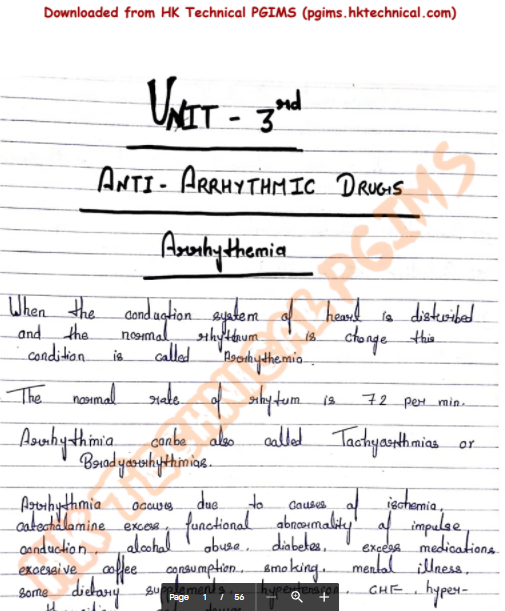 Downloaded from HK Technical PGIMS (pgims.hktechnical.com)
UNIT - 3rd
ANTI - ARRHYTHMIC DRUGS
Arrhythemia
When the conduction system of heart is disturbed
and the normal rhythum is change this
condition is called Arrhythemia.
The normal rate of rhytum is 72 per min.
Arrhythmia can be also called Tachyarrthmias or
Bradyarrhythimias.
Arrhythmia occurs due to causes of ischemia,
catecholamine excess, functional abnormality of impulse
conduction, alcohal abuse, diabetes, excess medications
excessive coffee consumption, smoking, mental illness,
some dietary supplements, hypertension, CHF, hyper-
Page 1 / 56
HK TECHNICAL PGIMS